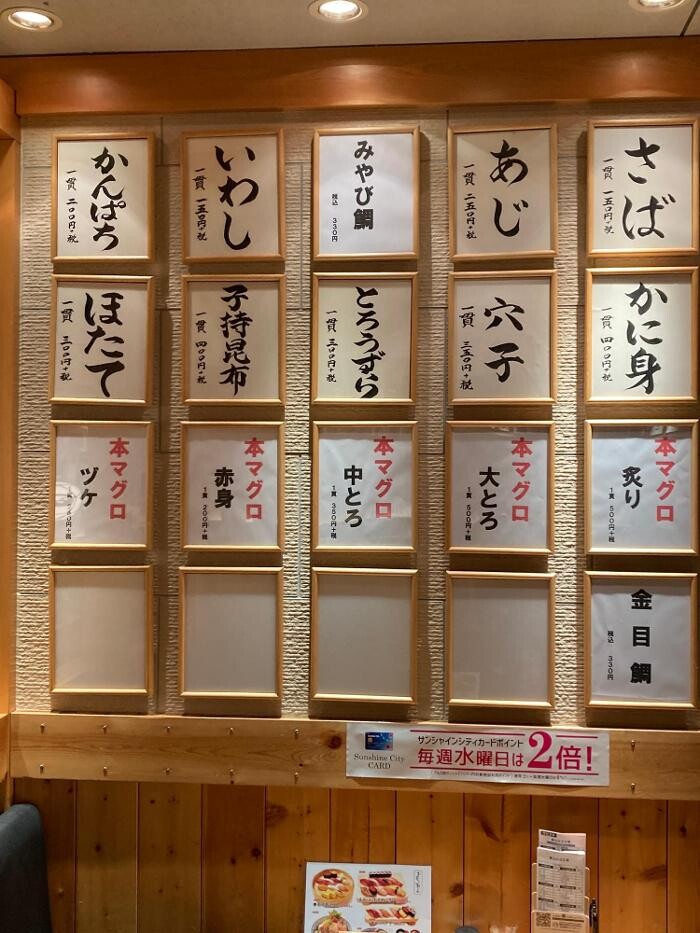 さば
一貫 一五〇円+税
あじ
一貫 二五〇円+税
みやび鯛
税込 330円
いわし
一貫 一五〇円+税
かんぱち
一貫 二〇〇円+税
かに身
一貫 四〇〇円+税
穴子
一貫 三五〇円+税
とろうずら
一貫 三〇〇円+税
子持昆布
一貫 四〇〇円+税
ほたて
一貫 三〇〇円+税
本マグロ
炙り
1貫 500円+税
本マグロ
大とろ
1貫 500円+税
本マグロ
中とろ
1貫 350円+税
本マグロ
赤身
1貫 200円+税
本マグロ
ヅケ
金目鯛
税込 330円
Sunshine City
CARD
サンシャインシティカードポイント
毎週水曜日は2倍!